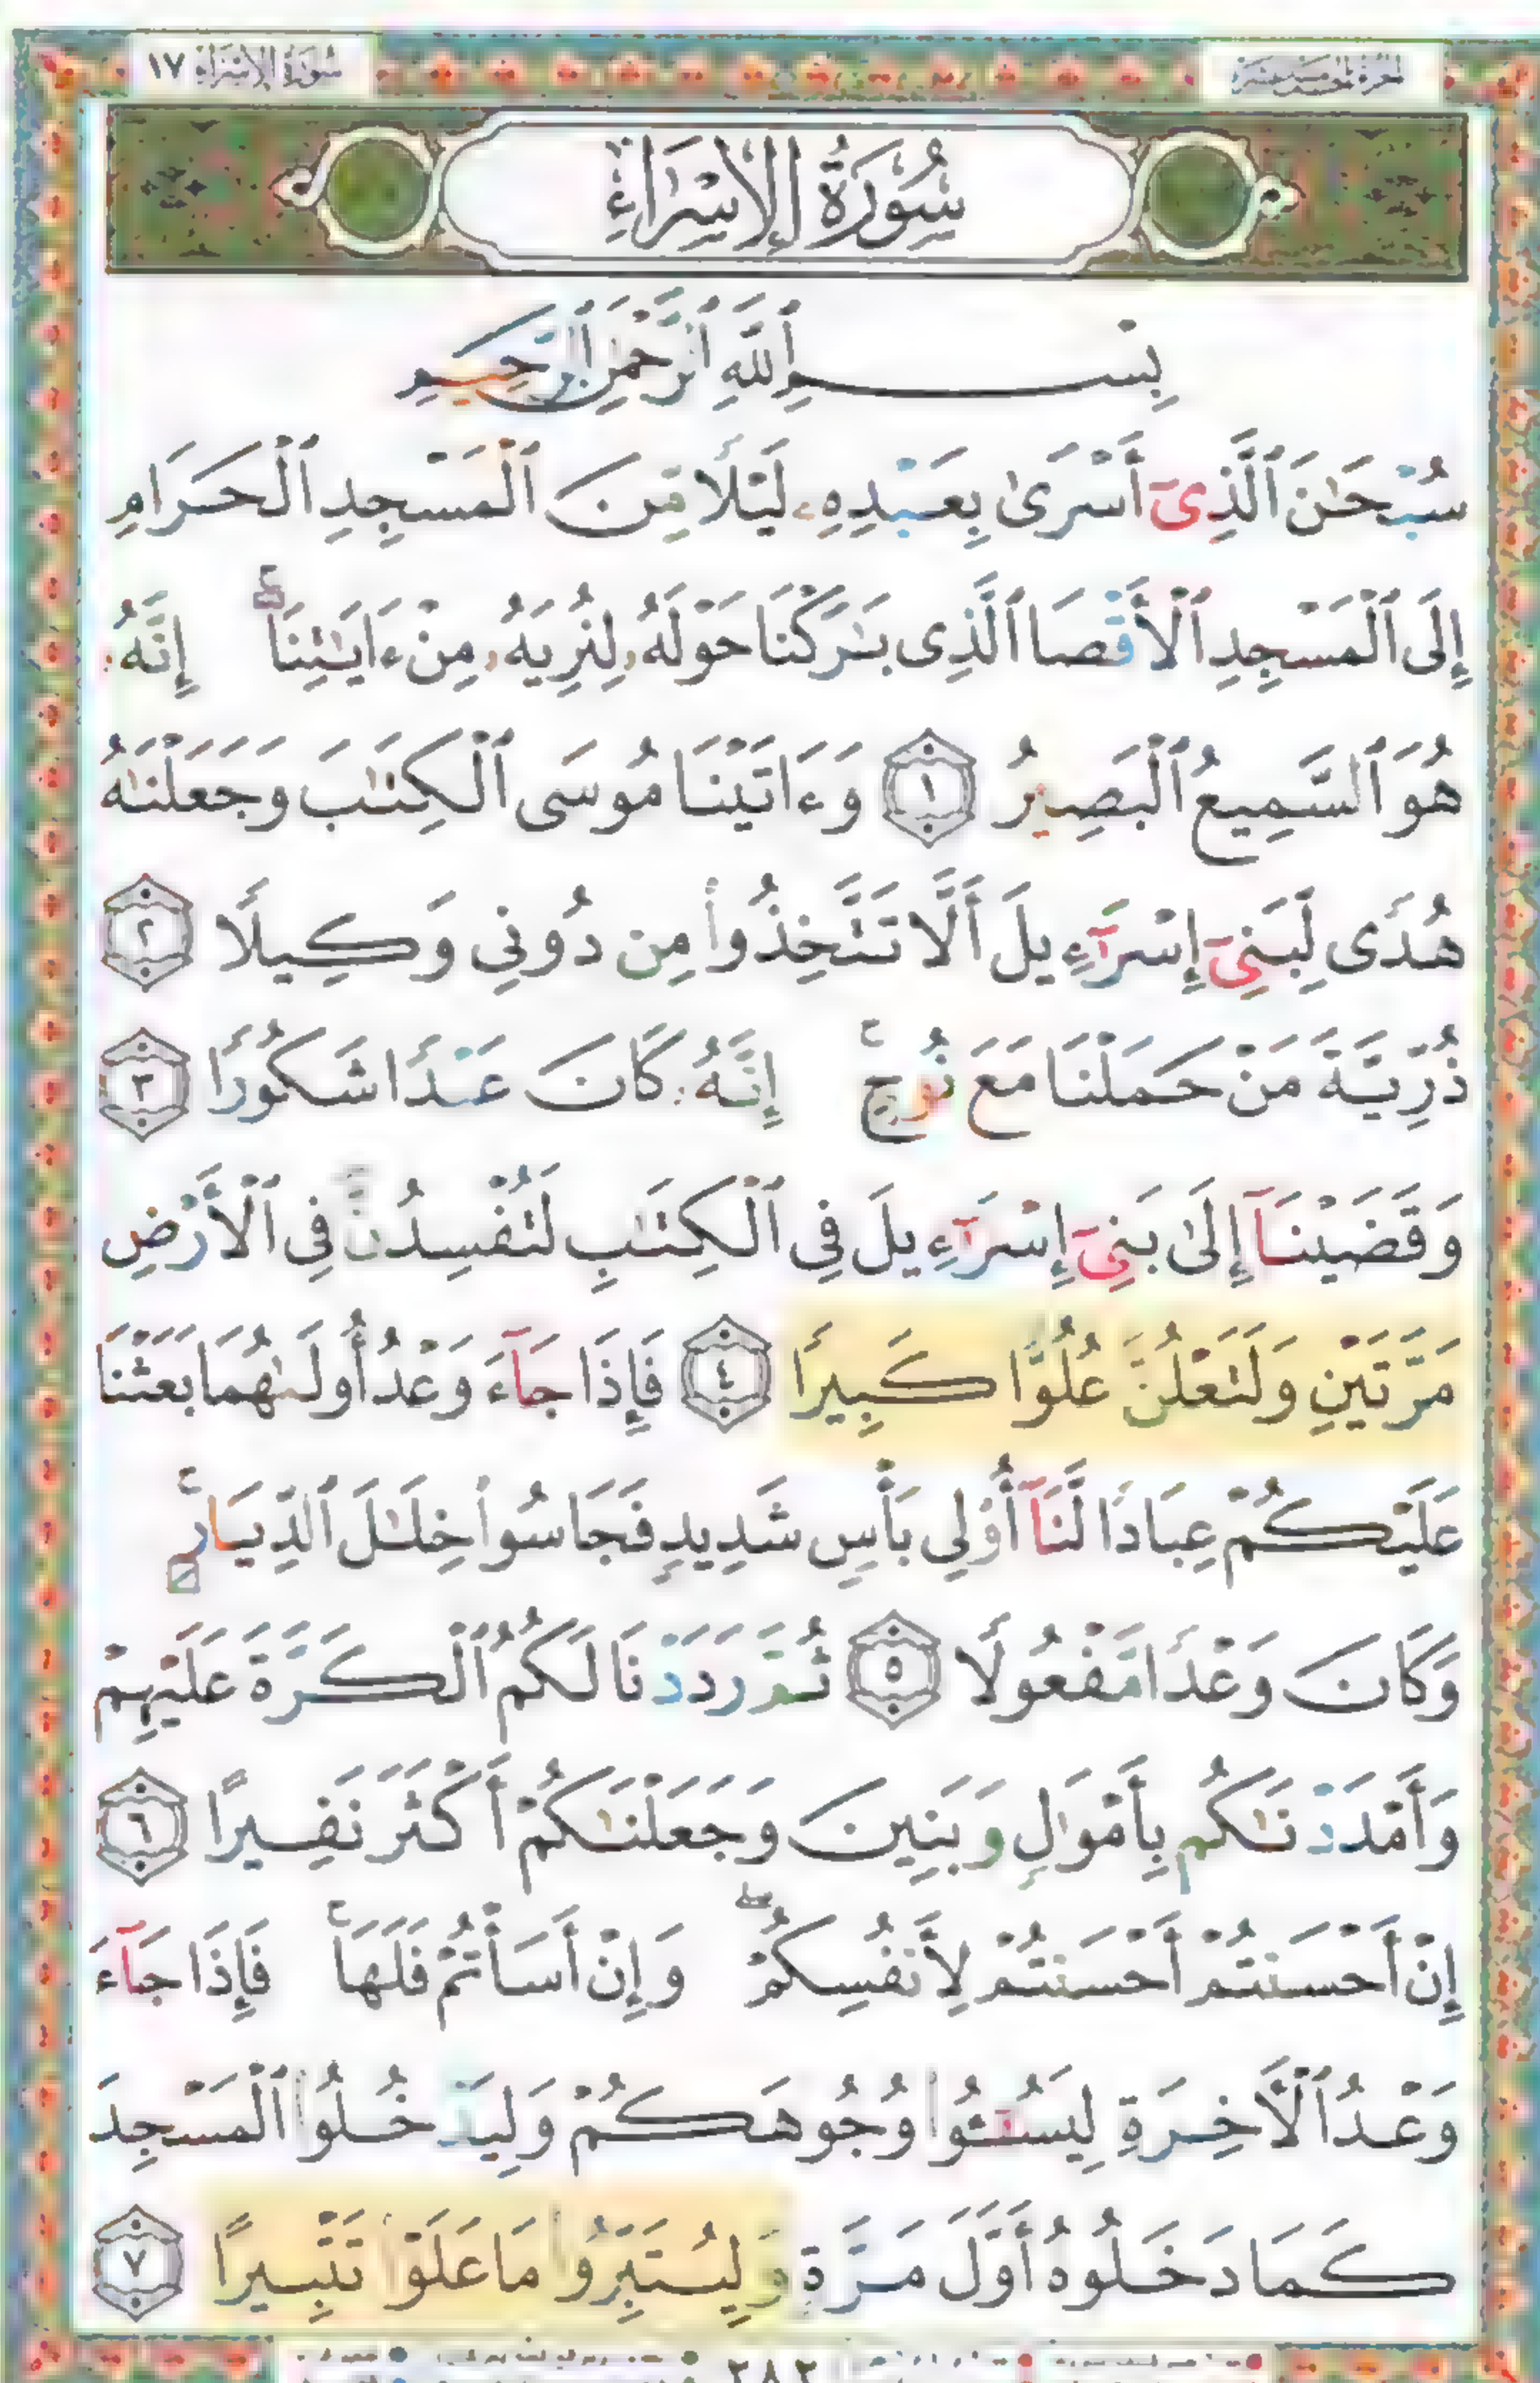 سُورَةُ الإِسْرَاءِ ١٧
الجزء الخامس عشر
سُورَةُ الإِسْرَاءِ
بِسْمِ ٱللَّهِ ٱلرَّحْمَٰنِ ٱلرَّحِيمِ
سُبْحَٰنَ ٱلَّذِىٓ أَسْرَىٰ بِعَبْدِهِۦ لَيْلًا مِّنَ ٱلْمَسْجِدِ ٱلْحَرَامِ
إِلَى ٱلْمَسْجِدِ ٱلْأَقْصَا ٱلَّذِى بَٰرَكْنَا حَوْلَهُۥ لِنُرِيَهُۥ مِنْ ءَايَٰتِنَآ ۚ إِنَّهُۥ
هُوَ ٱلسَّمِيعُ ٱلْبَصِيرُ ١ وَءَاتَيْنَا مُوسَى ٱلْكِتَٰبَ وَجَعَلْنَٰهُ
هُدًى لِّبَنِىٓ إِسْرَٰٓءِيلَ أَلَّا تَتَّخِذُوا۟ مِن دُونِى وَكِيلًا ٢
ذُرِّيَّةَ مَنْ حَمَلْنَا مَعَ نُوحٍ ۚ إِنَّهُۥ كَانَ عَبْدًا شَكُورًا ٣
وَقَضَيْنَآ إِلَىٰ بَنِىٓ إِسْرَٰٓءِيلَ فِى ٱلْكِتَٰبِ لَتُفْسِدُنَّ فِى ٱلْأَرْضِ
مَرَّتَيْنِ وَلَتَعْلُنَّ عُلُوًّا كَبِيرًا ٤ فَإِذَا جَآءَ وَعْدُ أُولَىٰهُمَا بَعَثْنَا
عَلَيْكُمْ عِبَادًا لَّنَآ أُو۟لِى بَأْسٍ شَدِيدٍ فَجَاسُوا۟ خِلَٰلَ ٱلدِّيَارِ ۚ
وَكَانَ وَعْدًا مَّفْعُولًا ٥ ثُمَّ رَدَدْنَا لَكُمُ ٱلْكَرَّةَ عَلَيْهِمْ
وَأَمْدَدْنَٰكُم بِأَمْوَٰلٍ وَبَنِينَ وَجَعَلْنَٰكُمْ أَكْثَرَ نَفِيرًا ٦
إِنْ أَحْسَنتُمْ أَحْسَنتُمْ لِأَنفُسِكُمْ ۖ وَإِنْ أَسَأْتُمْ فَلَهَا ۚ فَإِذَا جَآءَ
وَعْدُ ٱلْأَخِرَةِ لِيَسُۥٓـُٔوا۟ وُجُوهَكُمْ وَلِيَدْخُلُوا۟ ٱلْمَسْجِدَ
كَمَا دَخَلُوهُ أَوَّلَ مَرَّةٍ وَلِيُتَبِّرُوا۟ مَا عَلَوْا۟ تَتْبِيرًا ٧
٢٨٢